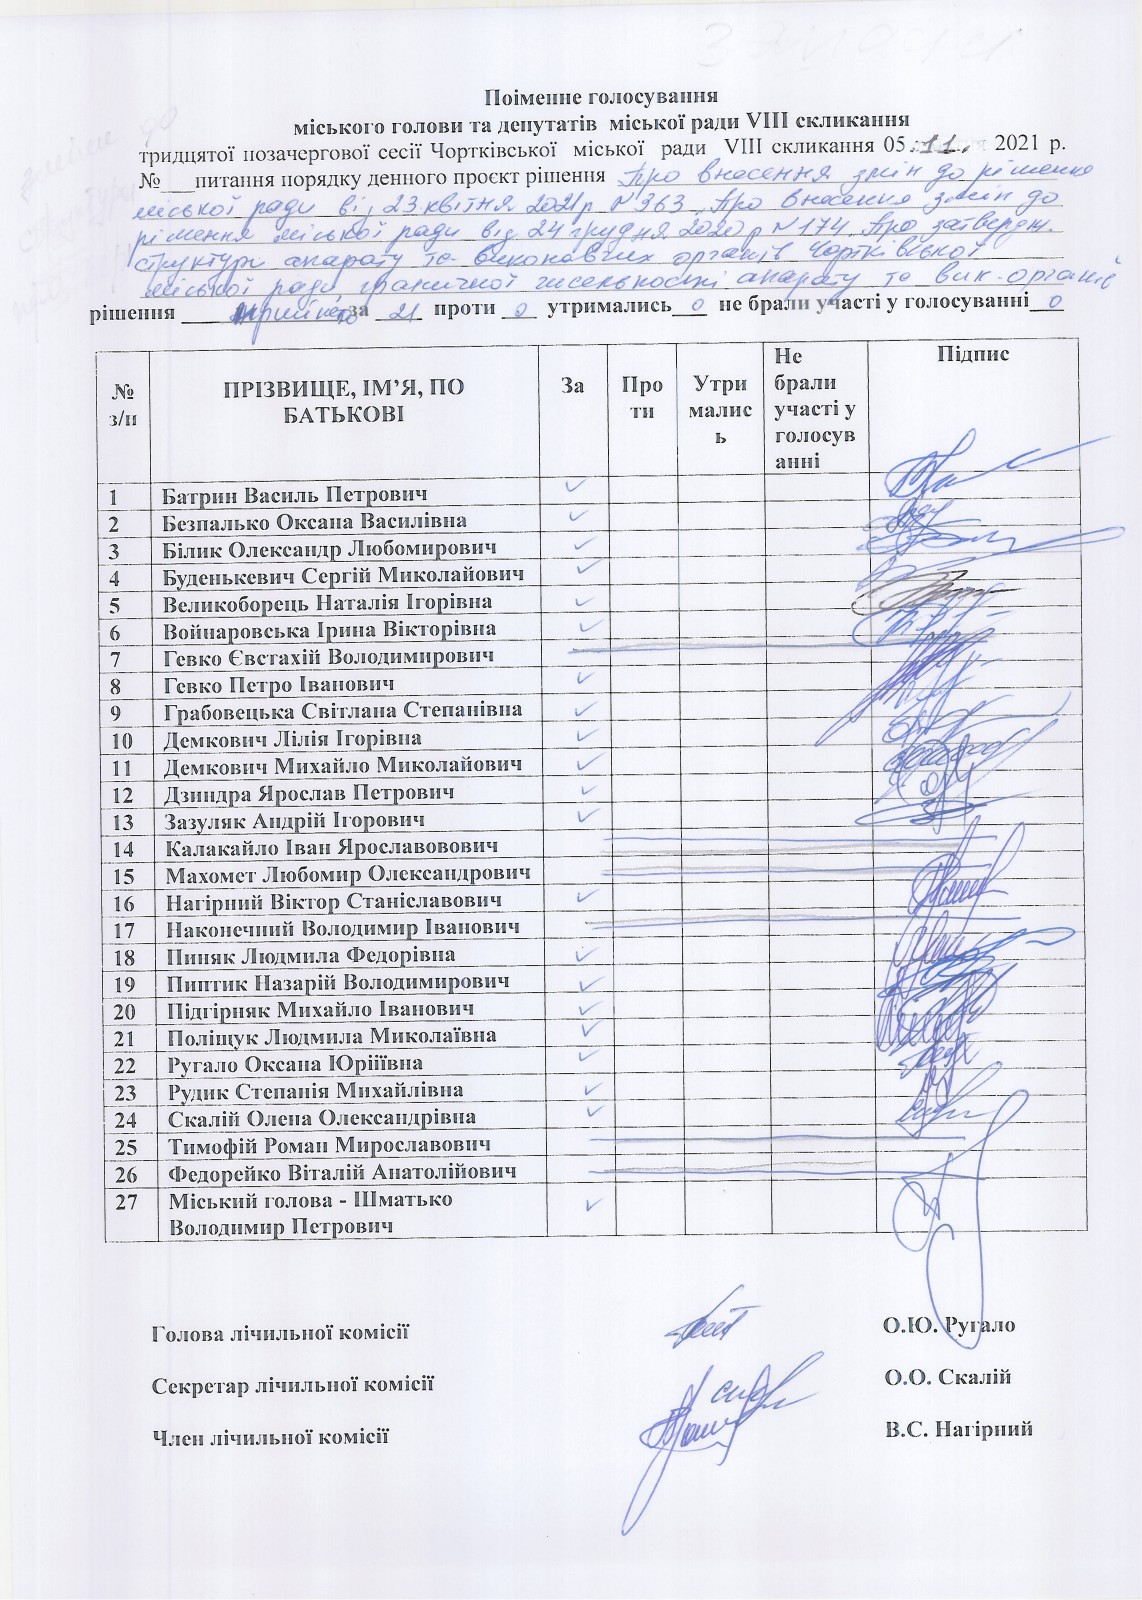 Поіменне голосування
міського голови та депутатів міської ради VIII скликання
тридцятої позачергової сесії Чортківської міської ради VIII скликання 05.11. 2021 р.
№___питання порядку денного проєкт рішення Про внесення змін до рішення
міської ради від 23 квітня 2021р N 363 „Про внесення змін до
рішення міської ради від 24 грудня 2020р N 174 „Про затвердж.
структури апарату та виконавчих органів Чортківської
міської ради, граничної чисельності апарату та вик. органів
рішення прийнято за 21 проти 0 утримались 0 не брали участі у голосуванні 0
№ з/п ПРІЗВИЩЕ, ІМ’Я, ПО БАТЬКОВІ За Про ти Утри малис ь Не брали участі у голосув анні Підпис
1 Батрин Василь Петрович ✓
2 Безпалько Оксана Василівна ✓
3 Білик Олександр Любомирович ✓
4 Буденькевич Сергій Миколайович ✓
5 Великоборець Наталія Ігорівна ✓
6 Войнаровська Ірина Вікторівна ✓
7 Гевко Євстахій Володимирович
8 Гевко Петро Іванович ✓
9 Грабовецька Світлана Степанівна ✓
10 Демкович Лілія Ігорівна ✓
11 Демкович Михайло Миколайович ✓
12 Дзиндра Ярослав Петрович ✓
13 Зазуляк Андрій Ігорович ✓
14 Калакайло Іван Ярославовович
15 Махомет Любомир Олександрович
16 Нагірний Віктор Станіславович ✓
17 Наконечний Володимир Іванович
18 Пиняк Людмила Федорівна ✓
19 Пиптик Назарій Володимирович ✓
20 Підгірняк Михайло Іванович ✓
21 Поліщук Людмила Миколаївна ✓
22 Ругало Оксана Юріїївна ✓
23 Рудик Степанія Михайлівна ✓
24 Скалій Олена Олександрівна ✓
25 Тимофій Роман Мирославович
26 Федорейко Віталій Анатолійович
27 Міський голова - Шматько Володимир Петрович ✓
Голова лічильної комісії О.Ю. Ругало
Секретар лічильної комісії О.О. Скалій
Член лічильної комісії В.С. Нагірний